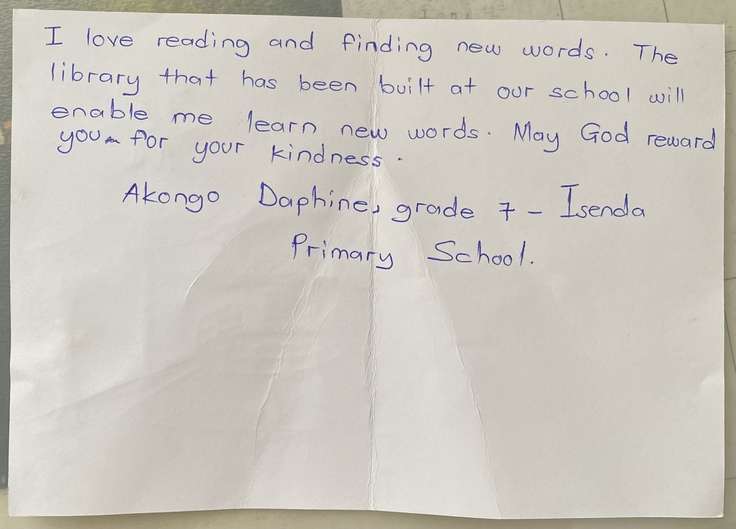 I love reading and finding new words. The
library that has been built at our school will
enable me learn new words. May God reward
you for your kindness.
Akongo Daphine, grade 7 - Isenda
Primary School.